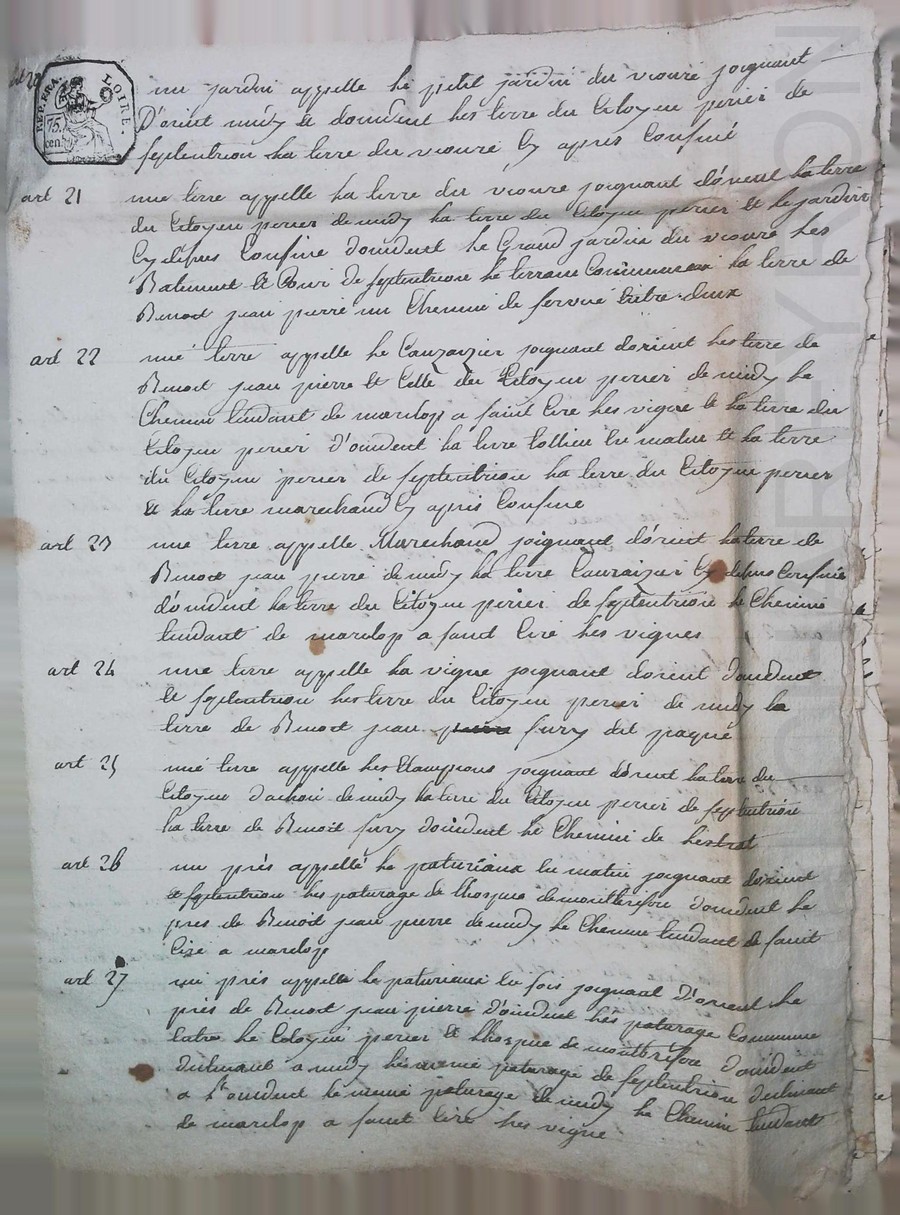 REP. FRA. LOIRE.
75. cen.
un jardin appelle le petit jardin du vioure joignant
D'orient midy et doccident les terre du Citoyen perier de
septentrion la terre du vioure Cy apres Confiné
art 21 une terre appelle la terre du vioure joignant dórient la terre
du Citoyen perier de midy la terre du Citoyen perier et le jardin
Cy depus Confine doccident le Grand jardin du vioure les
Batiment et Cour de septentrion le terrain Commune la terre de
Benoit jean pierre un Chemin de servive Entre deux
art 22 une terre appelle le Cauzaizier joignant dorient les terre de
Benoit jean pierre et Celle du Citoyen perier de midy le
Chemin tendant de marclop a saint Cire les vigne et la terre du
Citoyen perier d'occident la terre Collieu en matin et la terre
du Citoyen perier de septentrion la terre du Citoyen perier
et la terre marechand Cy apres Confine
art 23 une terre appelle Marechand joignant dórient la terre de
Benoit jean pierre de midy la terre Cauzaizier Cy desus Confiné
dóccident la terre du Citoyen perier de septentrion le Chemin
tendant de marclop a saint Ciré les vignes
art 24 une terre appelle la vigne joignant dorient doccident
et septentrion les terre du Citoyen perier de midy la
terre de Benoit jean fury dit paqué
art 25 une terre appelle les Champions joignant dórient la terre du
Citoyen dachon de midy la terre du Citoyen perier de septentrion
la terre de Benoit fury doccident le Chemin de lestrat
art 26 un près appellé le paturiaux en matin joignant dorient
et septentrion les paturage de Lhospice de montbrison doccident le
pres de Benoit jean pierre de midy le Chemin tendant de saint
Cire a marclop
art 27 un près appelle le paturiaux en fois joignant D'orient le
près de Benoit jean pierre D'occident les paturage Commune
Entre le Citoyen perier et Lhospice de montbrison doccident
declinant a midy les meme paturage de septentrion declinant
a l'occident le meme paturage de midy le Chemin tendant
de marclop a saint Cire les vigne